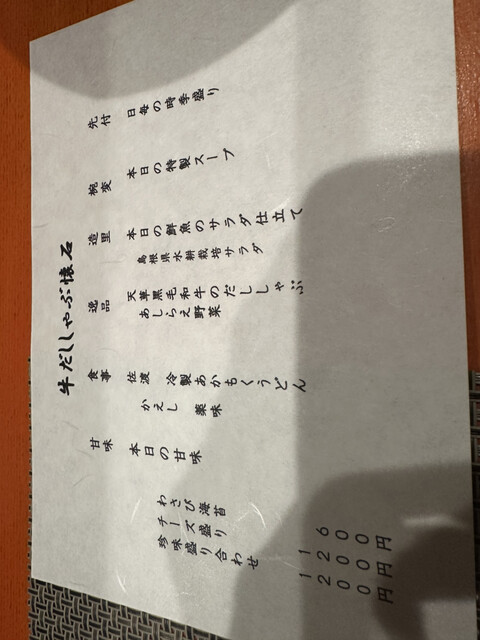 牛だししゃぶ懐石
先付
日毎の時季盛り
椀変
本日の特製スープ
造里
本日の鮮魚のサラダ仕立て
島根県水耕栽培サラダ
逸品
天草黒毛和牛のだししゃぶ
あしらえ野菜
食事
佐渡 冷製あかもくうどん
かえし 薬味
甘味
本日の甘味
わさび海苔 600円
チーズ盛り 1200円
珍味盛り合わせ 1200円